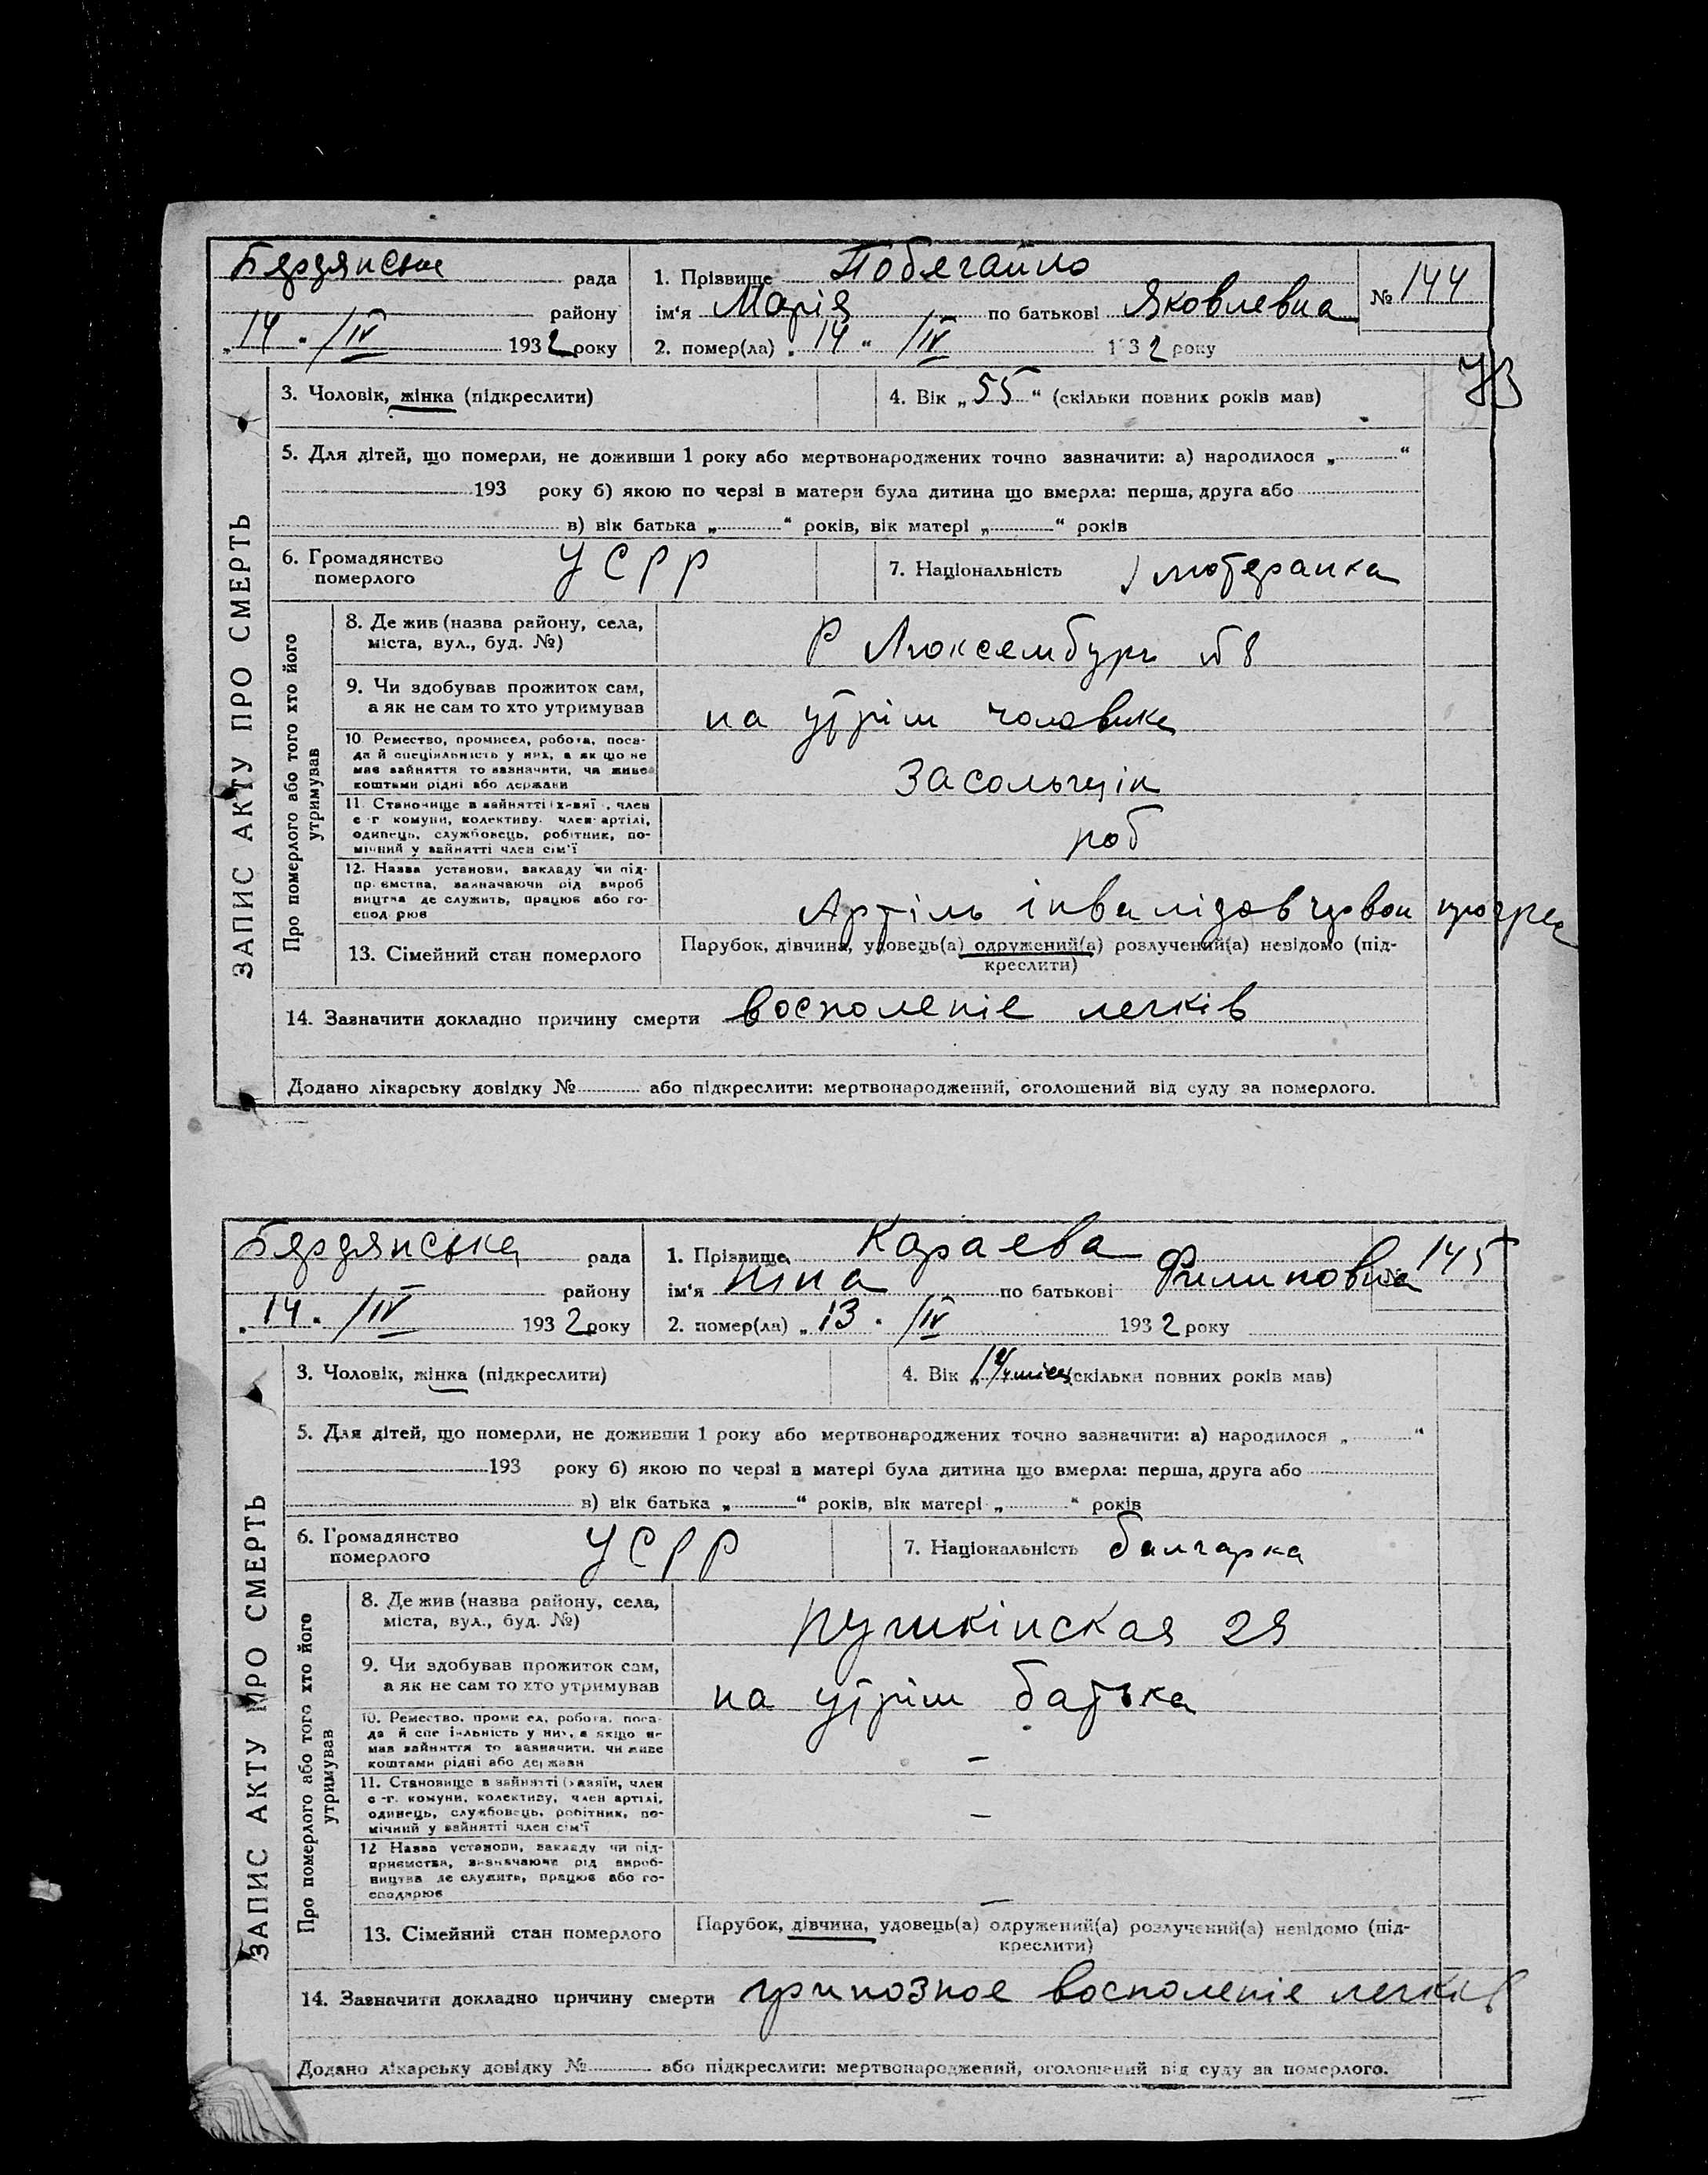 Бердянська рада
району
„14" /IV 1932 року
1. Прізвище Побягайло
ім'я Марія по батькові Яковлевна
2. помер(ла) „14" /IV 1932 року
№ 144
ЗАПИС АКТУ ПРО СМЕРТЬ
3. Чоловік, жінка (підкреслити)
4. Вік „55" (скільки повних років мав)
5. Для дітей, що померли, не доживши 1 року або мертвонароджених точно зазначити: а) народилося „ "
193 року б) якою по черзі в матери була дитина що вмерла: перша, друга або
в) вік батька „ " років, вік матері „ " років
6. Громадянство померлого УСРР
7. Національність лютеранка
Про померлого або того хто його утримував
8. Де жив (назва району, села,
міста, вул., буд. №)
Р Люксембург №8
9. Чи здобував прожиток сам,
а як не сам то хто утримував
на утрім чоловика
10. Ремество, промисел, робота, поса-
да й спеціяльність у них, а як що не
має зайняття то зазначити, чи живе
коштами рідні або держави
Засольщік
11. Становище в зайнятті (хазяї , член
с-г комуни, колективу, член артілі,
одинець, службовець, робітник, по-
мічний у зайнятті член сім'ї
роб
12. Назва установи, закладу чи під-
приємства, зазначаючи рід вироб
ництва де служить, працює або го-
сподарює
Артіль інвалідов
13. Сімейний стан померлого
Парубок, дівчина, удовець(а) одружений(а) розлучений(а) невідомо (під-
креслити)
14. Зазначити докладно причину смерти восполеніе легків
Додано лікарську довідку № або підкреслити: мертвонароджений, оголошений від суду за померлого.
Бердянська рада
району
„14" /IV 1932 року
1. Прізвище Караева
ім'я Нина по батькові Филиповна
2. помер(ла) „13" /IV 1932 року
№ 145
ЗАПИС АКТУ ПРО СМЕРТЬ
3. Чоловік, жінка (підкреслити)
4. Вік (скільки повних років мав)
5. Для дітей, що померли, не доживши 1 року або мертвонароджених точно зазначити: а) народилося „ "
193 року б) якою по черзі в матері була дитина що вмерла: перша, друга або
в) вік батька „ " років, вік матері „ " років
6. Громадянство померлого УСРР
7. Національність балгарка
Про померлого або того хто його утримував
8. Де жив (назва району, села,
міста, вул., буд. №)
Пушкінская 29
9. Чи здобував прожиток сам,
а як не сам то хто утримував
на утрім батька
10. Ремество, промисел, робота, поса-
да й спеціяльність у них, а якщо не
має зайняття то зазначити, чи живе
коштами рідні або держави
–
11. Становище в зайнятті (хазяїн, член
с-г. комуни, колективу, член артілі,
одинець, службовець, робітник, по-
мічний у зайнятті член сім'ї
–
12 Назва установи, закладу чи під-
приємства, зазначаючи рід вироб-
ництва де служить, працює або го-
сподарює
–
13. Сімейний стан померлого
Парубок, дівчина, удовець(а) одружений(а) розлучений(а) невідомо (під-
креслити)
14. Зазначити докладно причину смерти грипозное восполеніе легків
Додано лікарську довідку № або підкреслити: мертвонароджений, оголошений від суду за померлого.